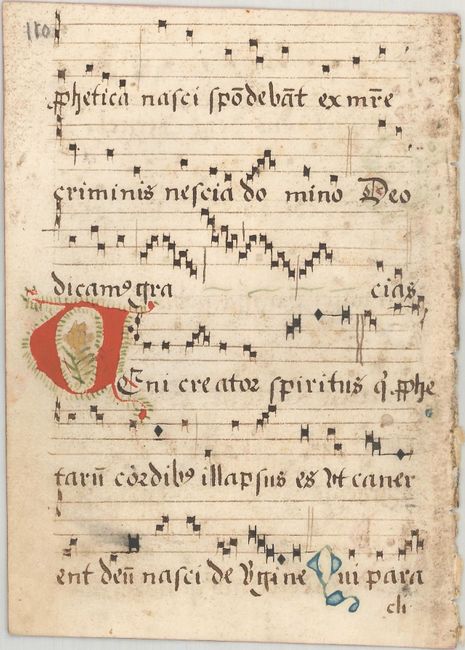 110
ꝓphetica nasci spōdebāt ex mr̄e
criminis nescia do mino Deo
dicamꝰ gra cias
Veni creator spiritus q̓ ꝓphe
tarū cordibꝰ illapsus es vt caner
ent deū nasci de v̓gine Qui para
cli